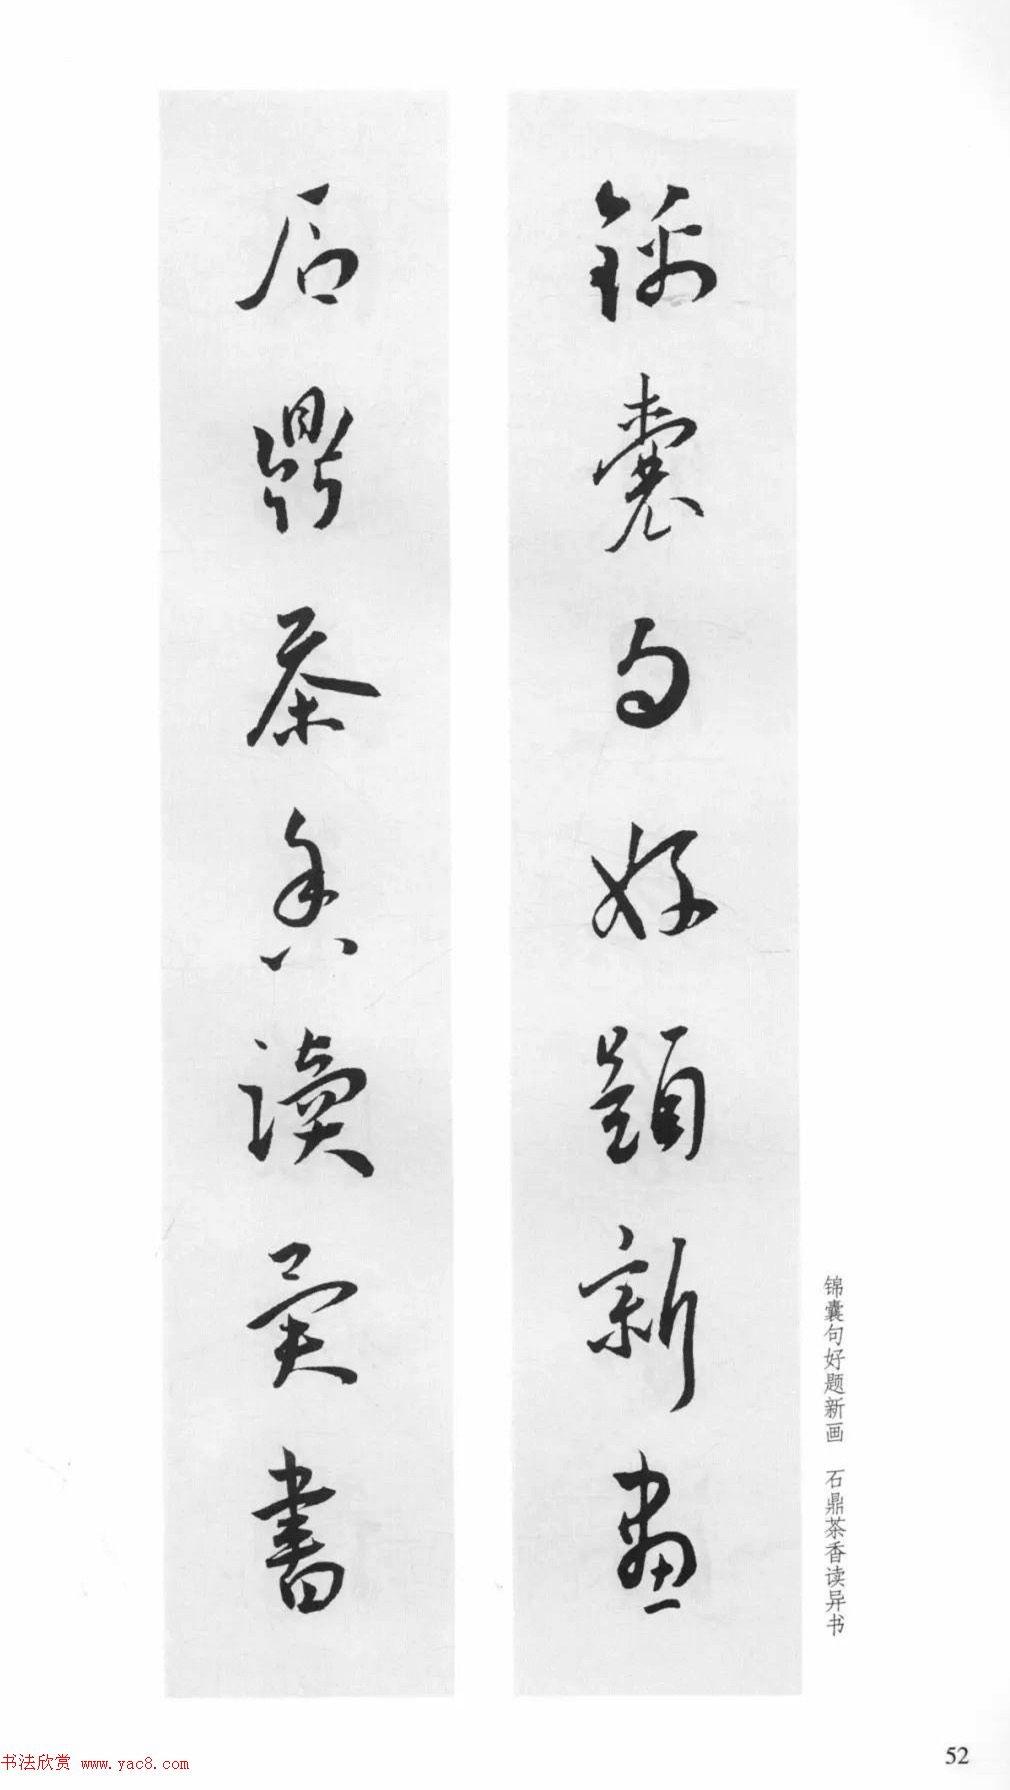 錦囊句好題新畫
石鼎茶香讀異書
锦囊句好题新画 石鼎茶香读异书
52
书法欣赏 www.yac8.com